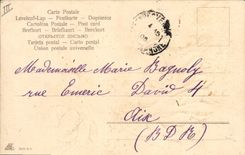 III
Carte Postale
Levelező-Lap — Postkarte — Dopisnice
Cartolina Postale — Post card
Brefkort — Briefkaart — Brevkort
ОТКРЫТОЕ ПИСЬМО
Tarjeta postal — Carta postal
Union postale universelle
Mademoiselle Marie Bagnoly
rue Emeric David 4
Aix
(B D R)